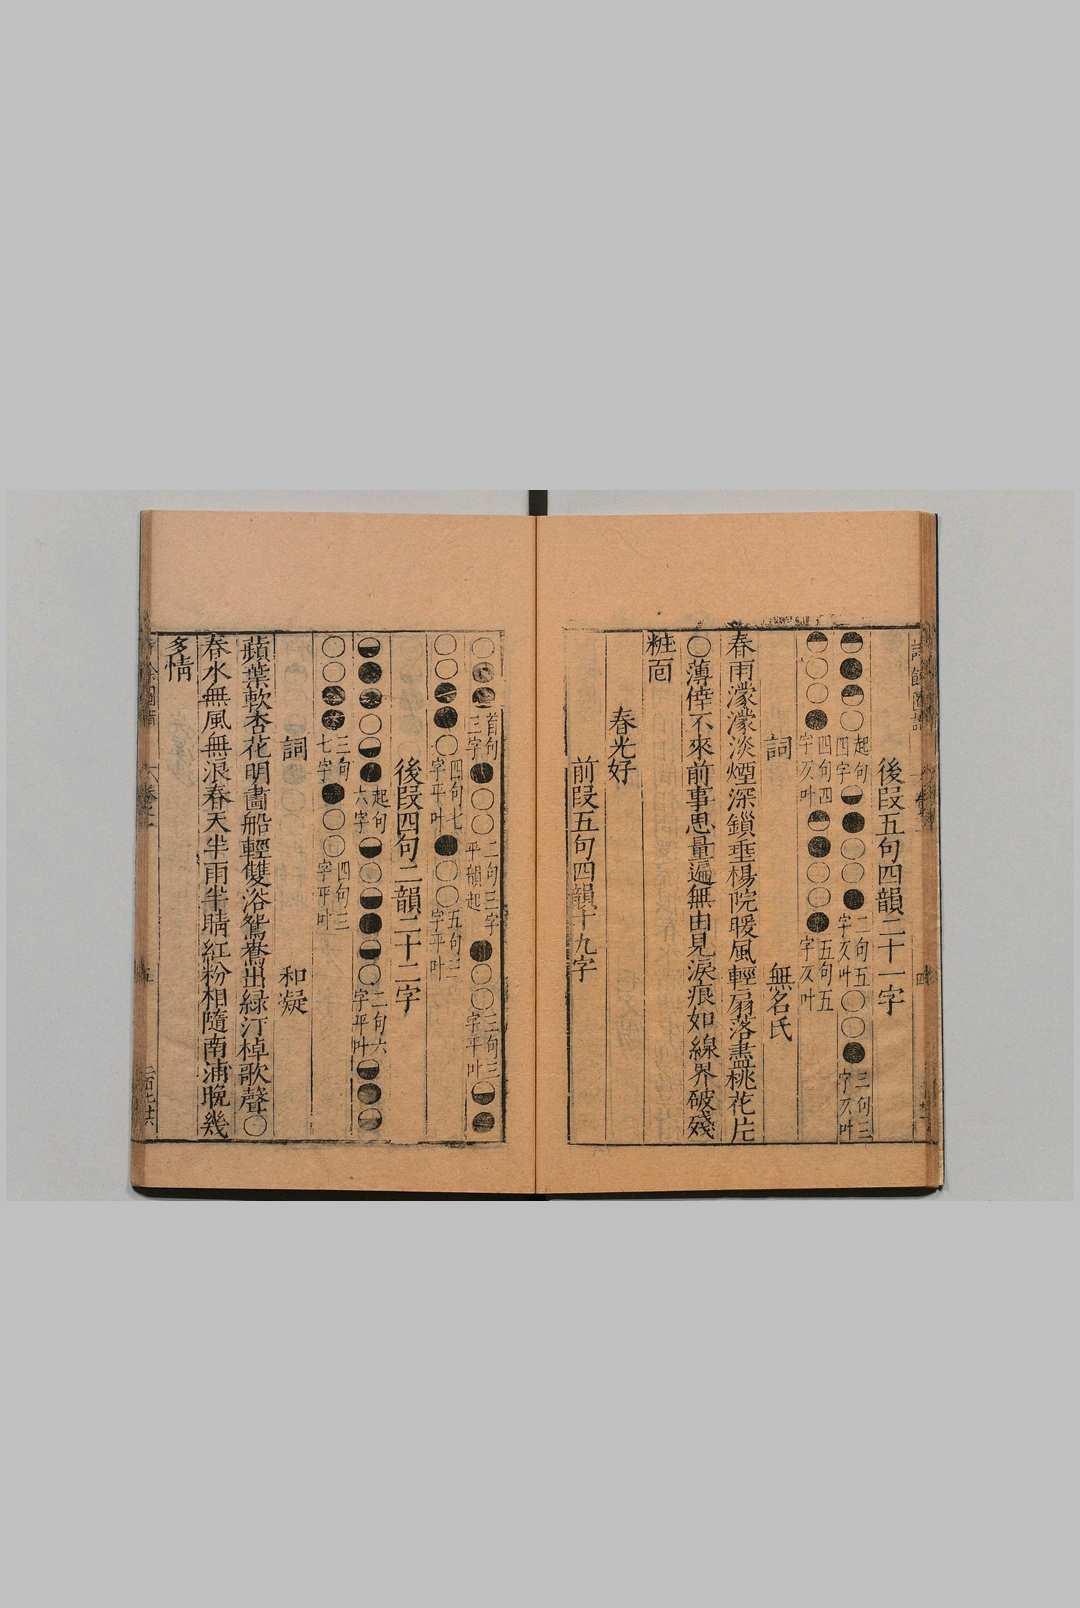 後段五句四韻二十一字
◓●◓○起句四字◓●○○●二句五字仄叶○○●三句三字仄叶
◓○○●四句四字仄叶◓●○○●五句五字仄叶
詞 無名氏
春雨濛濛淡煙深鎖垂楊院暖風輕扇落盡桃花片
○薄倖不來前事思量遍無由見淚痕如線界破殘
粧面
春光好
前段五句四韻十九字
首句三字●○○平韻起二句三字●○○三句三字平叶
○○四句七字平叶●○○五句三字平叶
後段四句二韻二十二字
起句六字二句六字平叶
三句七字●○○四句三字平叶
詞 和凝
蘋葉軟杏花明畫船輕雙浴鴛鴦出綠汀棹歌聲○
春水無風無浪春天半雨半晴紅粉相隨南浦晚幾
多情
五